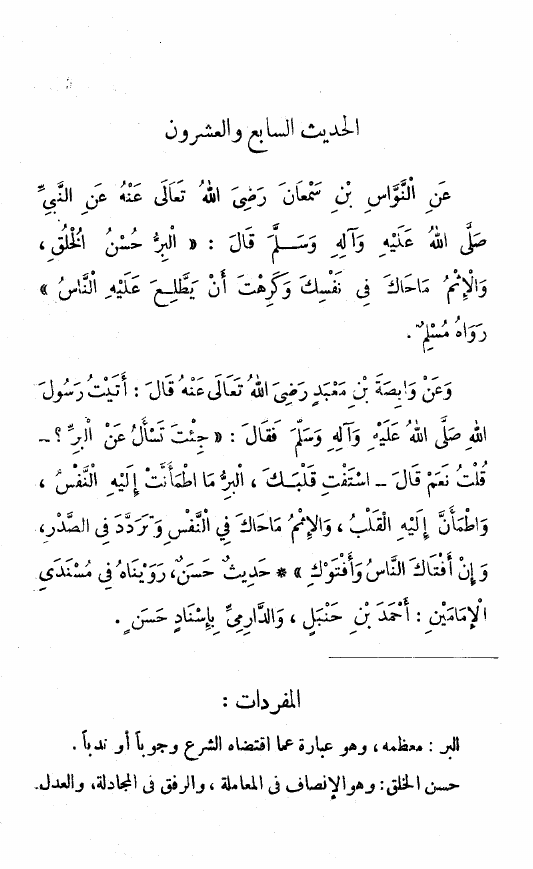 الحديث السابع والعشرون
عَنِ النَّوَّاسِ بْنِ سَمْعَانَ رَضِىَ اللهُ تَعَالَى عَنْهُ عَنِ النَّبِىِّ
صَلَّى اللهُ عَلَيْهِ وَآلِهِ وَسَلَّمَ قَالَ : « الْبِرُّ حُسْنُ الْخُلُقِ ،
وَالْإِثْمُ مَاحَاكَ فِى نَفْسِكَ وَكَرِهْتَ أَنْ يَطَّلِعَ عَلَيْهِ النَّاسُ »
رَوَاهُ مُسْلِمٌ .
وَعَنْ وَابِصَةَ بْنِ مَعْبَدٍ رَضِىَ اللهُ تَعَالَى عَنْهُ قَالَ : أَتَيْتُ رَسُولَ
اللهِ صَلَّى اللهُ عَلَيْهِ وَآلِهِ وَسَلَّمَ فَقَالَ : « جِئْتَ تَسْأَلُ عَنْ الْبِرِّ ؟ –
قُلْتُ نَعَمْ قَالَ – اسْتَفْتِ قَلْبَكَ ، الْبِرُّ مَا اطْمَأَنَّتْ إِلَيْهِ النَّفْسُ ،
وَاطْمَأَنَّ إِلَيْهِ الْقَلْبُ ، وَالْإِثْمُ مَاحَاكَ فِي النَّفْسِ وَتَرَدَّدَ فِى الصَّدْرِ،
وَإِنْ أَفْتَاكَ النَّاسُ وَأَفْتَوْكَ » * حَدِيثٌ حَسَنٌ، رَوَيْنَاهُ فِى مُسْنَدَيِ
الْإِمَامَيْنِ : أَحْمَدَ بْنِ حَنْبَلٍ ، وَالدَّارِمِىِّ بِإِسْنَادٍ حَسَنٍ .
المفردات :
البر : معظمه ، وهو عبارة عما اقتضاه الشرع وجوباً أو ندباً .
حسن الخلق : وهو الإنصاف فى المعاملة ، والرفق فى المجادلة، والعدل.